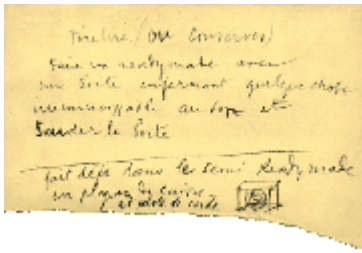 Tirelire (ou Conserves)
Faire un readymade avec
une boîte enfermant quelque chose
irreconnaissable au son et
Souder la boîte
fait déjà dans le semi Readymade
en plaques de cuivre
et pelote de corde